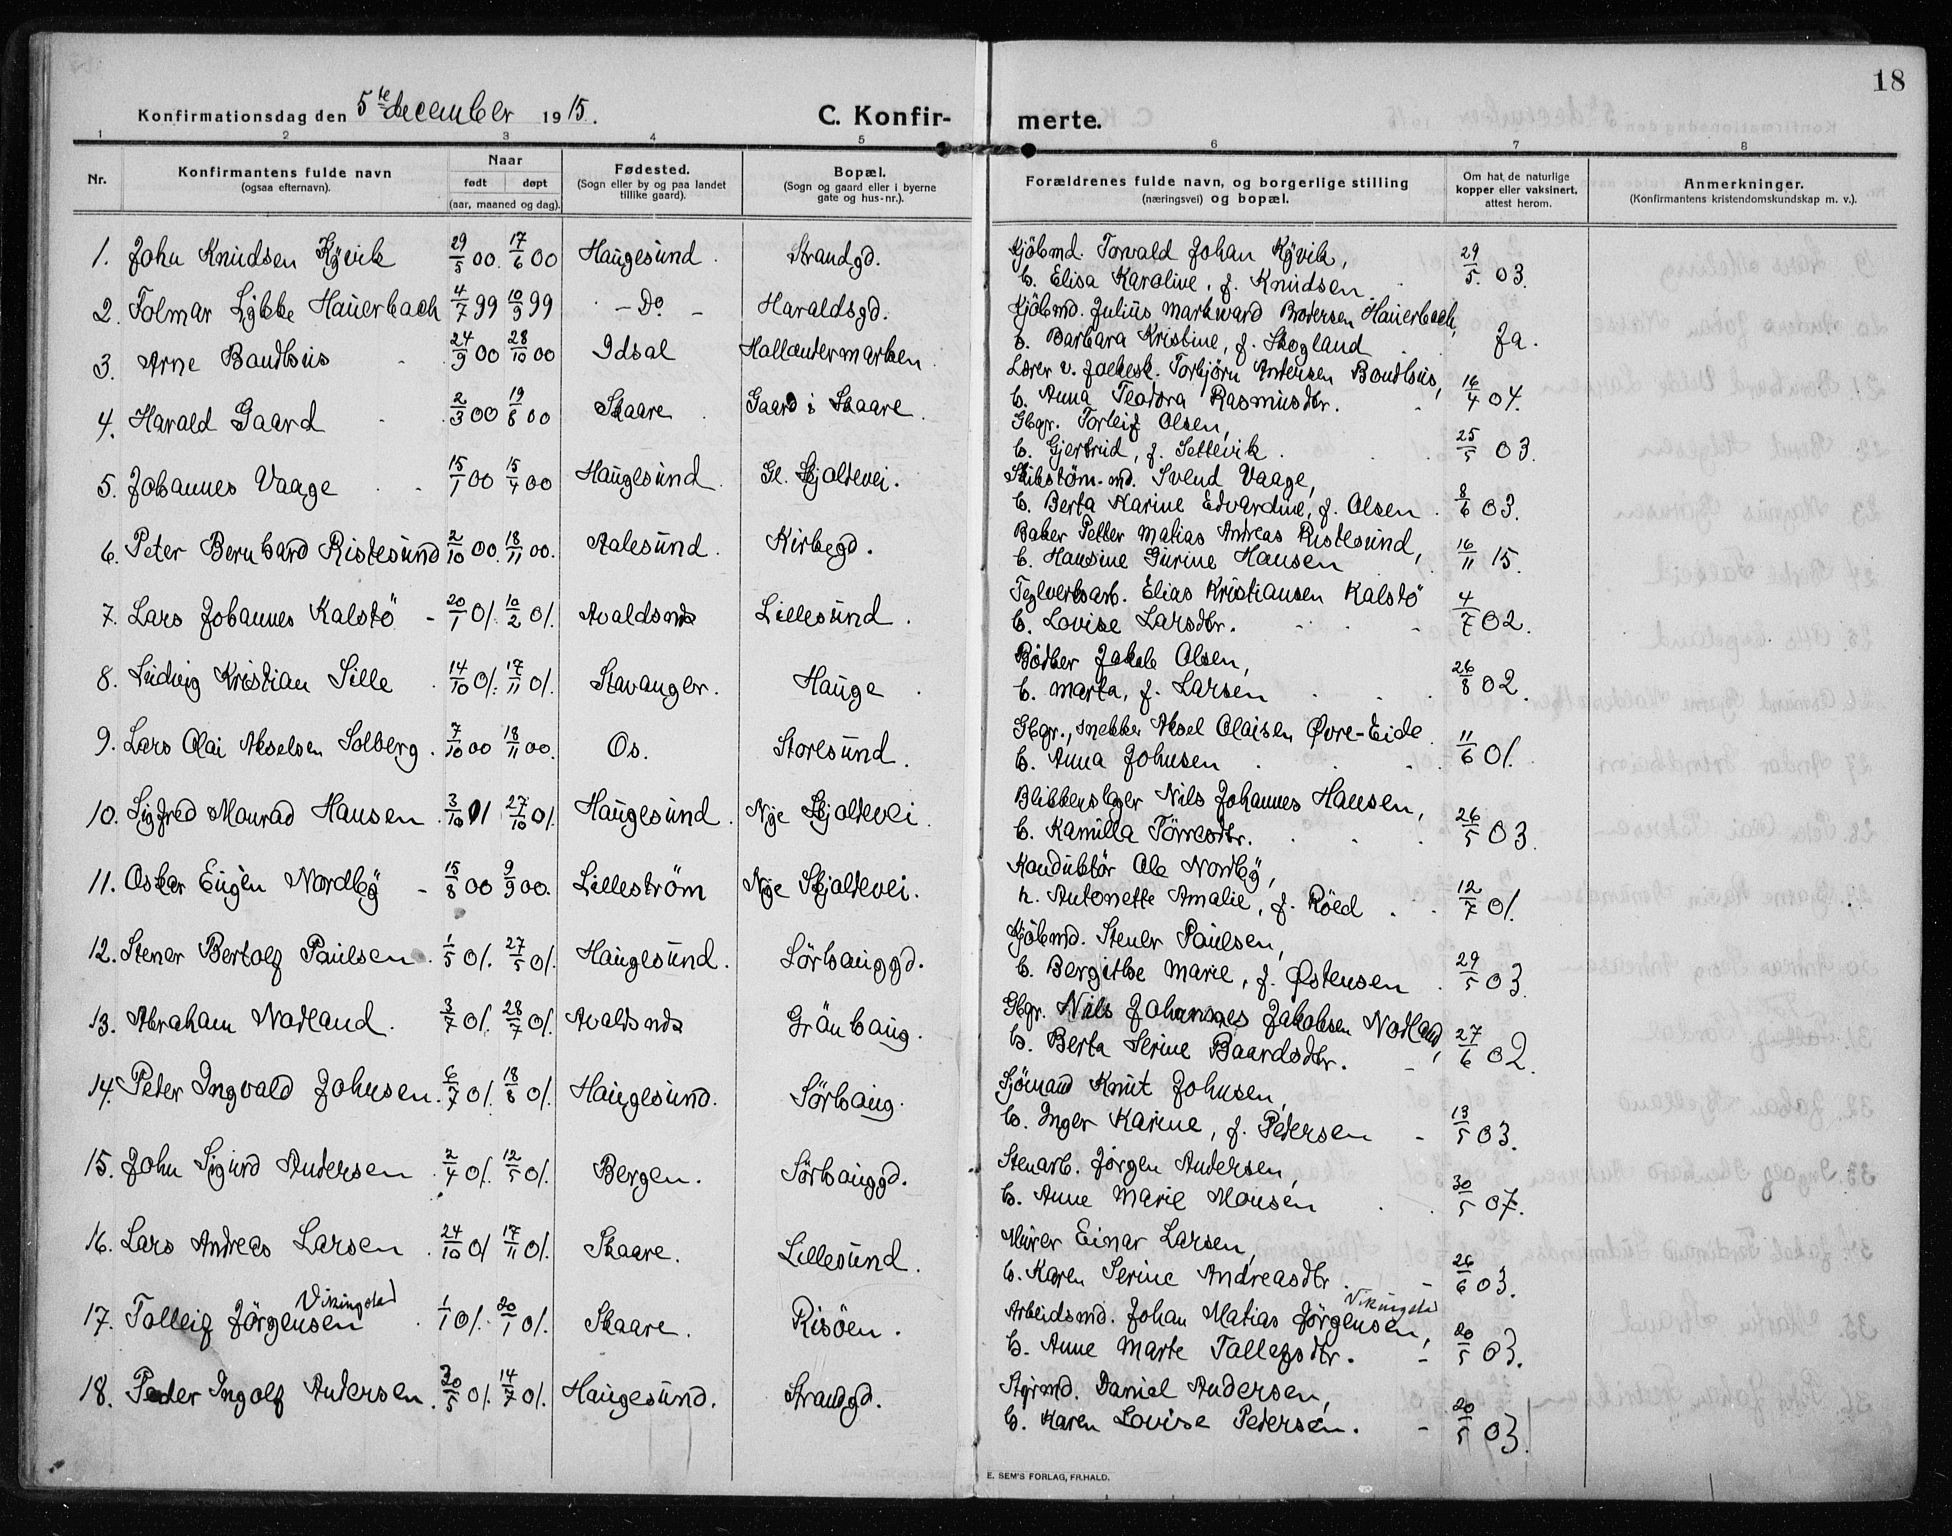 18
Konfirmationsdag den 5te december 1915.
C. Konfirmerte.
1 2 3 4 5 6 7 8
Nr.
Konfirmantens fulde navn
(ogsaa efternavn).
Naar
født døpt
(aar, maaned og dag).
Fødested.
(Sogn eller by og paa landet
tillike gaard).
Bopæl.
(Sogn og gaard eller i byerne
gate og hus-nr.).
Forældrenes fulde navn, og borgerlige stilling
(næringsvei) og bopæl.
Om hat de naturlige
kopper eller vaksinert,
attest herom.
Anmerkninger.
(Konfirmantens kristendomskundskap m. v.).
1. John Knudsen Kÿvik 29/5 00. 17/6 00 Haugesund. Strandgd. Kjöbmd. Torvald Johan Kÿvik, 29/5. 03.
& Elisa Karoline, f. Knudsen
2. Folmar Lykke Hauerbach 4/7 99 10/9 99 - Do - Haraldsgd. Kjöbmd. Julius Markward Brodersen Hauerbach, Ja.
& Barbara Kristine, f. Skogland
3. Arne Bandlsus 24/9 00 28/10 00 Idsal Hallandermarken. Lærer v. folkesk. Torbjørn Andersen Bandlsus, 16/4 04.
& Anna Teodora Rasmusdtr.
4. Harald Gaard 2/3 00 19/8 00 Skaare. Gaard i Skaare. Gbgr. Torleif Olsen, 25/5 03.
& Gjertrud, f. Settevik.
5. Johannes Vaage 15/1 00 15/4 00 Haugesund. Gl. Skjoldevei. Skibstøm.md. Svend Vaage, 8/6 03.
& Berta Karine Edvardine, f. Olsen.
6. Peter Bernhard Ristesund 2/10 00. 18/11 00. Aalesund. Kirkegd. Baker Petter Matias Andreas Ristesund, 16/11 15.
& Hansine Gurine Hansen
7. Lars Johannes Kalstö 20/1 01. 10/2 01. Avaldsnes Lillesund. Teglverksarb. Elias Kristiansen Kalstö 4/7 02.
& Lovise Larsdtr.
8. Ludvig Kristian Lille 14/10 01. 17/11 01. Stavanger. Hauge. Bödker Jakob Olsen, 26/8 02.
& Marta, f. Larsen
9. Lars Olai Akselsen Solberg. 7/10 00 18/11 00. Os. Storesund. Gbgr., snekker Aksel Olaisen Øvre-Eide. 11/6 01.
& Anna Johnsen
10. Sigfred Monrad Hansen. 3/10 01 27/10 01. Haugesund. Nye Skjoldevei. Blikkenslager Nils Johannes Hansen, 26/5 03.
& Kamilla Törresdtr.
11. Oskar Eugen Nordbÿ 15/8 00 9/9 00. Lilleström Nye Skjoldevei. Konduktör Ole Nordbÿ, 12/7 01.
h. Antonette Amalie, f. Röed
12. Stener Bertolf Paulsen. 1/5 01. 27/5 01. Haugesund. Sörhauggd. Kjöbmd. Stener Paulsen, 29/5 03.
& Bergithe Marie, f. Østensen.
13. Abraham Nodland. 3/7 01. 28/7 01. Avaldsnes Grönhaug. Gbgr. Nils Johannes Jakobsen Nodland, 27/6 02.
& Berta Serine Baardsdtr.
14. Peter Ingvald Johnsen. 6/7 01. 18/8 01. Haugesund. Sörhaug. Sjömand Knut Johnsen, 13/5 03.
& Inger Karine, f. Pedersen
15. John Sigurd Andersen 2/4 01. 12/5 01. Bergen. Sörhauggd. Stenarb. Jörgen Andersen, 30/5 07.
& Anne Marie Monsen
16. Lars Andreas Larsen 24/10 01 17/11 01. Skaare. Lillesund. Murer Einar Larsen, 26/6 03.
& Karen Serine Andreasdtr.
Vikingstad Vikingstad
17. Tolleif Jörgensen 1/1 01. 20/1 01. Skaare. Risöen. Arbeidsmd. Johan Matias Jörgensen, 20/5 03.
& Anne Marte Tollefsdtr.
18. Peder Ingolf Andersen. 20/5 01. 14/7 01. Haugesund. Strandgd. Styrmd. Daniel Andersen, 20/5 03.
& Karen Lovise Pedersen.
E. SEM'S FORLAG, FR.HALD.